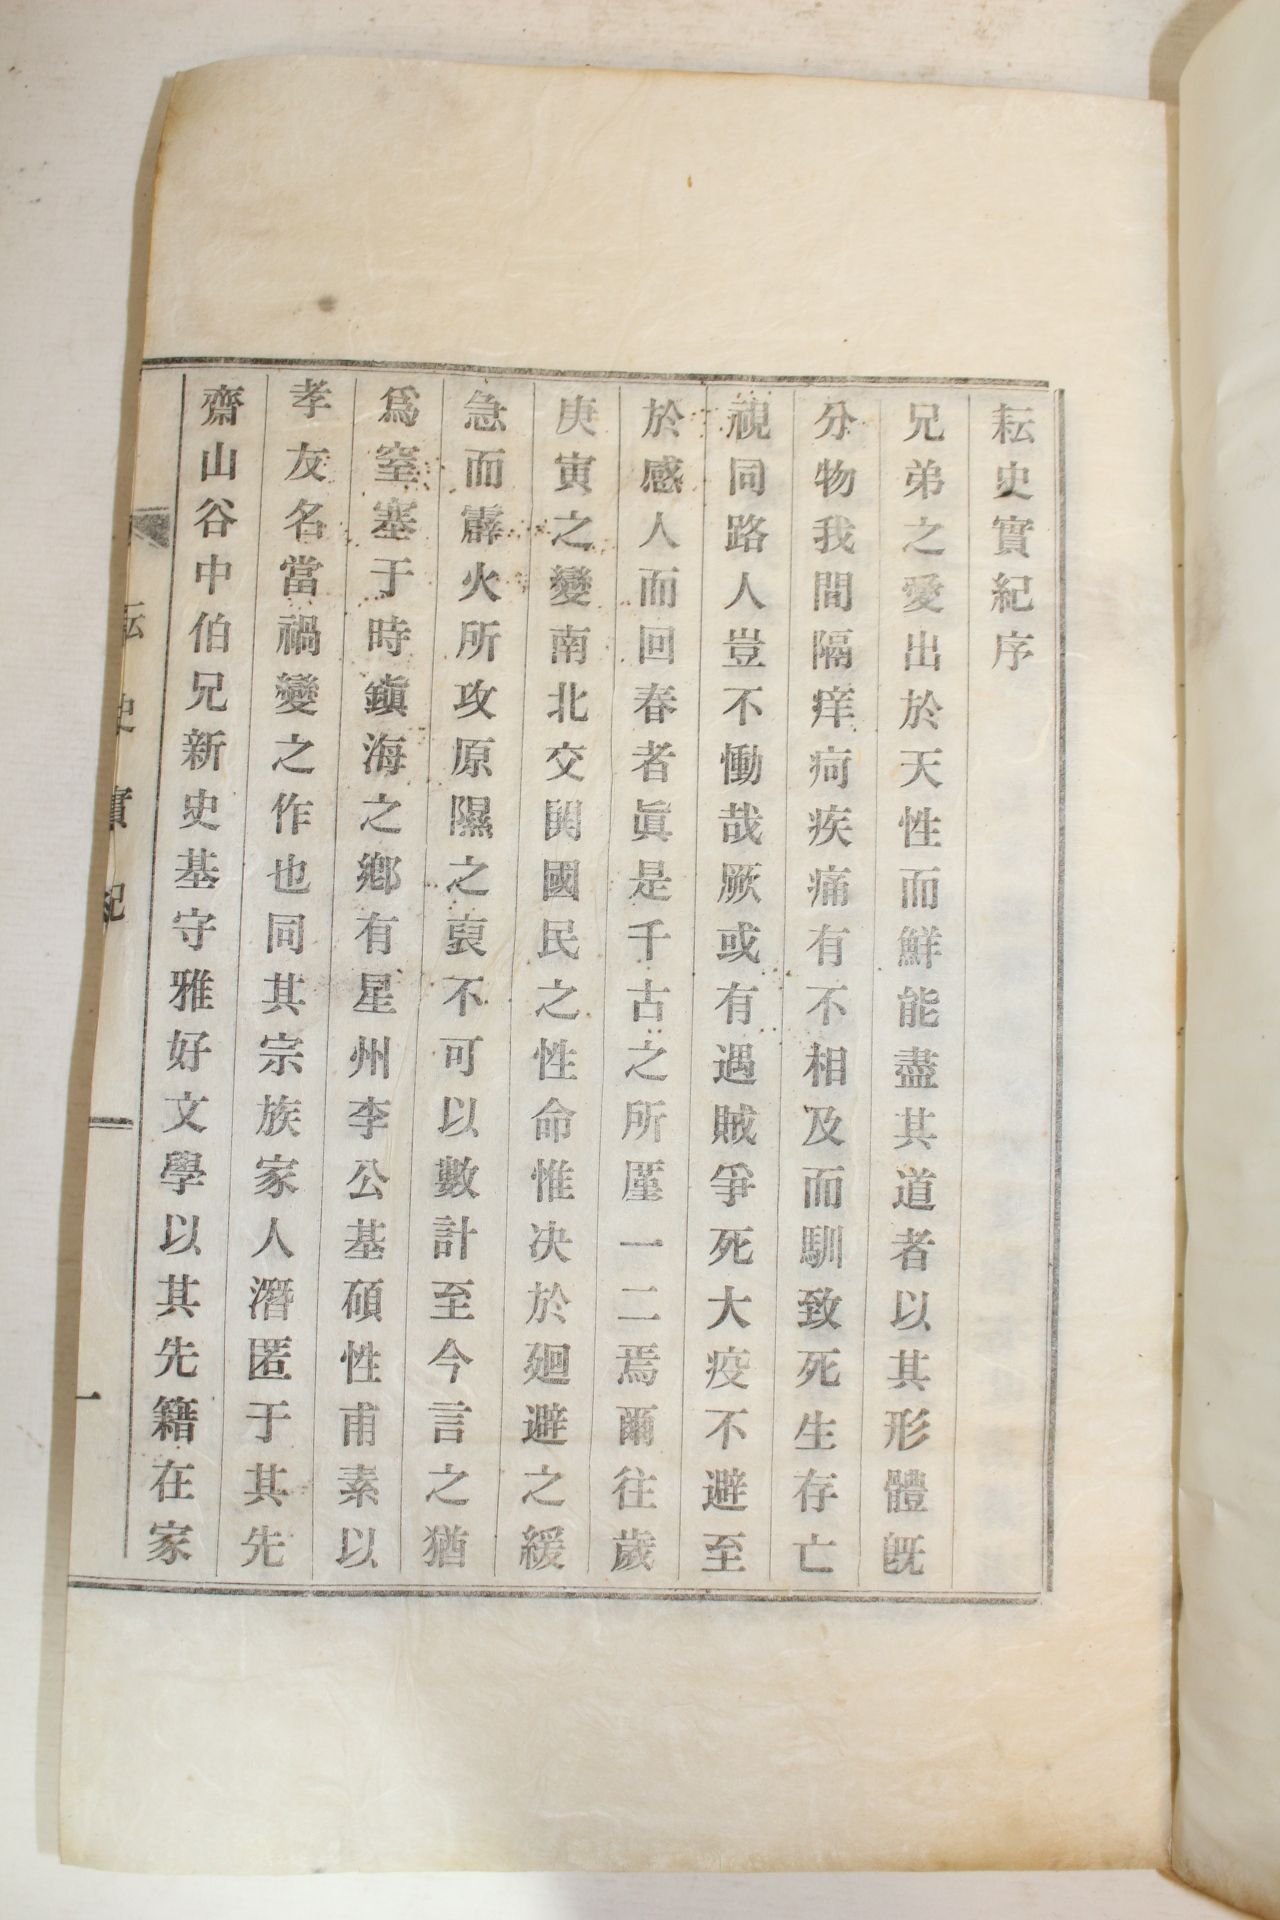 耘史實紀序
兄弟之愛出於天性而鮮能盡其道者以其形體旣
分物我間隔痒疴疾痛有不相及而馴致死生存亡
視同路人豈不慟哉厥或有遇賊爭死大疫不避至
於感人而回春者眞是千古之所厪一二焉爾往歲
庚寅之變南北交鬨國民之性命惟决於廻避之緩
急而霹火所攻原隰之裒不可以數計至今言之猶
爲窒塞于時鎭海之鄕有星州李公基碩性甫素以
孝友名當禍變之作也同其宗族家人潛匿于其先
齋山谷中伯兄新史基守雅好文學以其先籍在家
耘史實紀
一